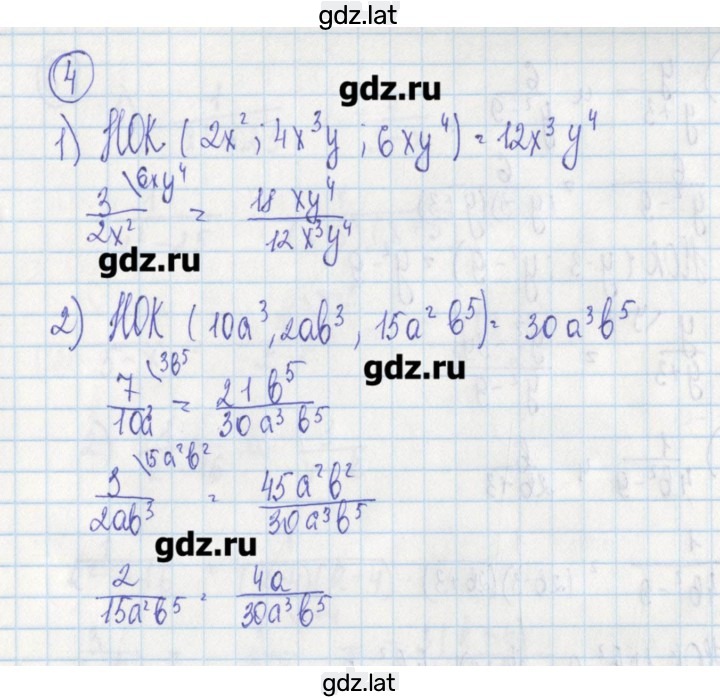 gdz.lat
4
gdz.ru
1) НОК (2x²; 4x³y; 6xy⁴) = 12x³y⁴
3/2x² \6xy⁴ = 18xy⁴/12x³y⁴
gdz.ru
2) НОК (10a³, 2ab³, 15a²b⁵) = 30a³b⁵
gdz.ru
7/10a³ \3b⁵ = 21b⁵/30a³b⁵
3/2ab³ \15a²b² = 45a²b²/30a³b⁵
gdz.ru
2/15a²b⁵ = 4a/30a³b⁵
gdz.lat